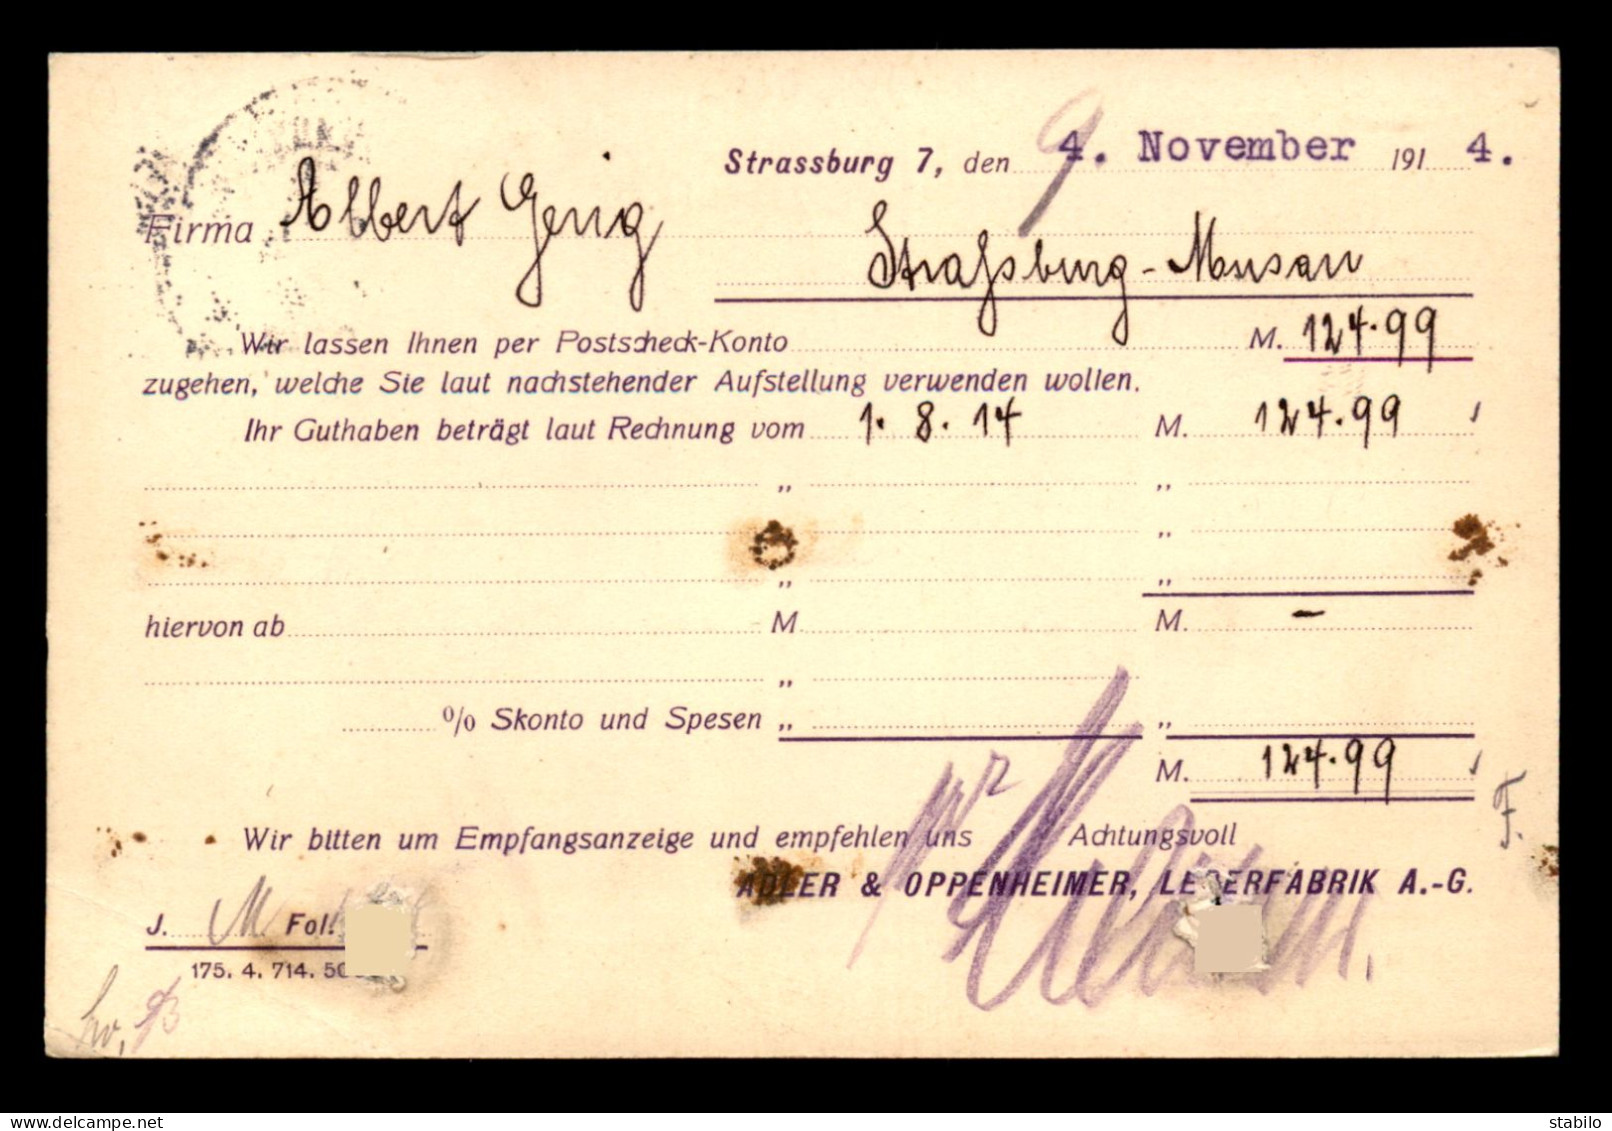 Strassburg 7, den 4. November 1914.
Firma Albert Gerig
Straßburg-Musau
Wir lassen Ihnen per Postscheck-Konto M. 124.99
zugehen, welche Sie laut nachstehender Aufstellung verwenden wollen.
Ihr Guthaben beträgt laut Rechnung vom 1. 8. 14 M. 124.99
„ „
„
„ „
hiervon ab M M. –
„
% Skonto und Spesen „ „
M. 124.99
F.
Wir bitten um Empfangsanzeige und empfehlen uns Achtungsvoll
ADLER & OPPENHEIMER, LEDERFABRIK A.-G.
J. M Fol.
175. 4. 714. 50
delcampe.net
stabilo